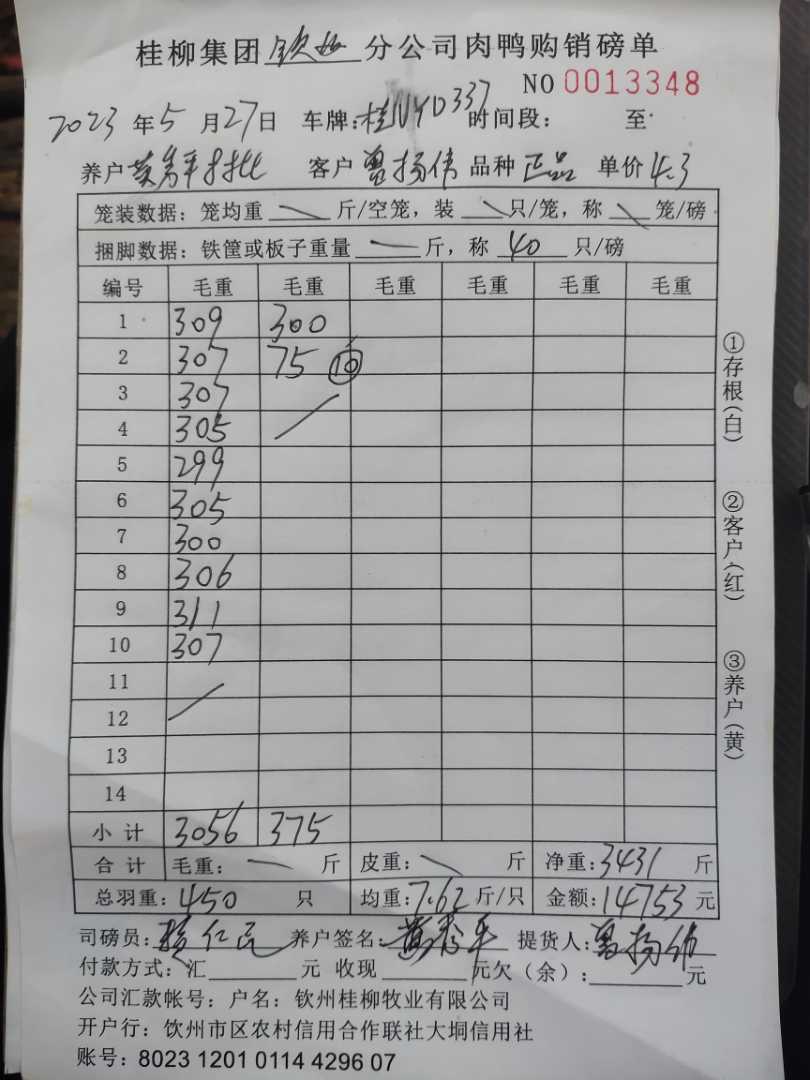 桂柳集团钦州分公司肉鸭购销磅单
NO 0013348
2023年5月27日 车牌:桂NYD337 时间段: 至
养户黄秀平 客户曾扬伟 品种正品 单价4.3
笼装数据:笼均重 斤/空笼,装 只/笼,称 笼/磅
捆脚数据:铁筐或板子重量 斤,称 40 只/磅
编号 毛重 毛重 毛重 毛重 毛重 毛重
1 309 300
2 307 75 10
3 307
4 305
5 299
6 305
7 300
8 306
9 311
10 307
11
12
13
14
小计 3056 375
合计 毛重: 斤 皮重: 斤 净重:3431 斤
总羽重:450 只 均重:7.62斤/只 金额:14753元
司磅员: 养户签名:黄秀平 提货人:曾扬伟
付款方式:汇 元 收现 元欠(余): 元
公司汇款帐号:户名:钦州桂柳牧业有限公司
开户行:饮州市区农村信用合作联社大垌信用社
账号:8023 1201 0114 4296 07
①存根(白)
②客户(红)
③养户(黄)